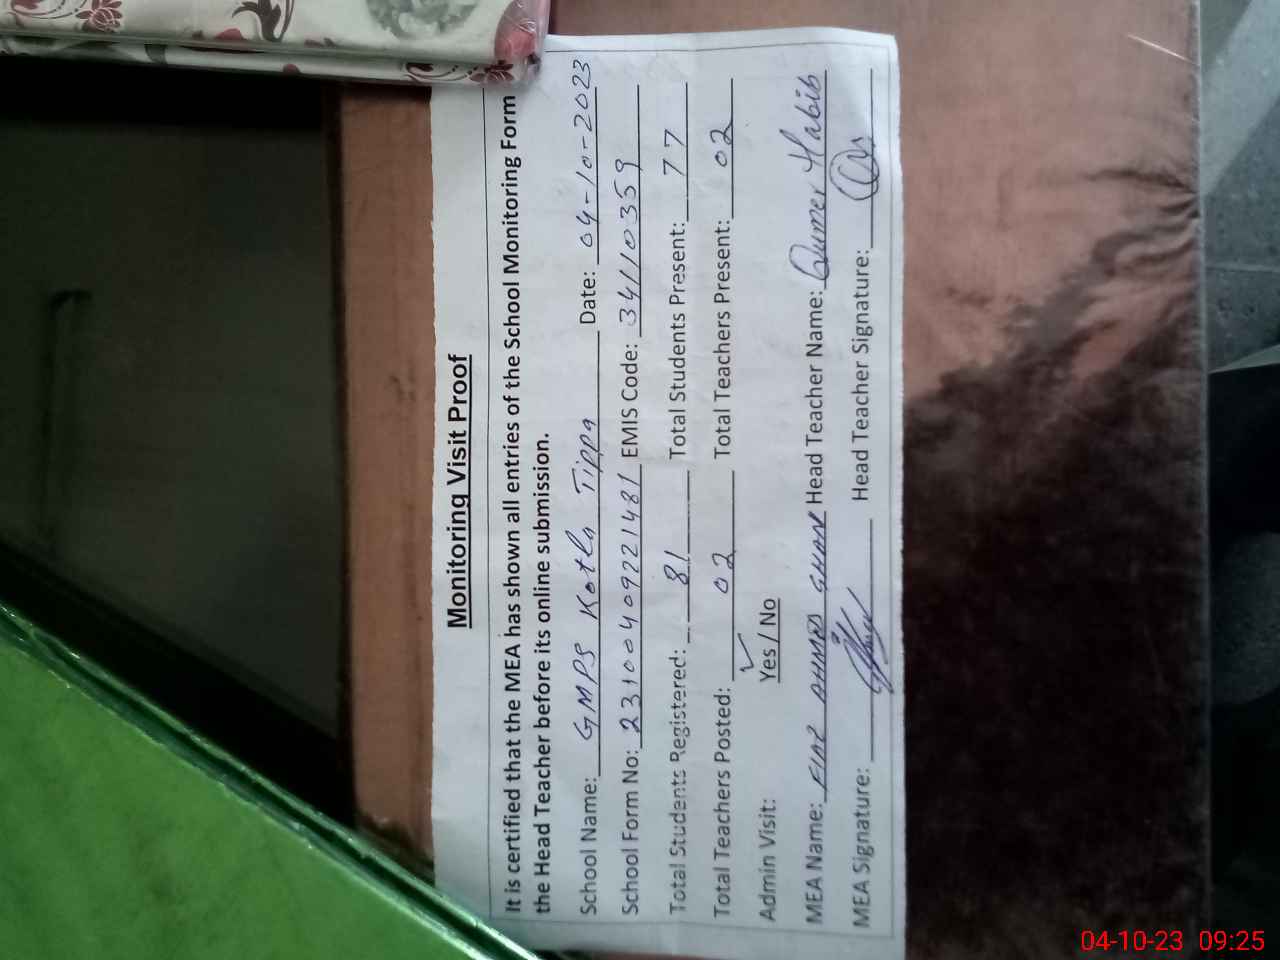 Monitoring Visit Proof
It is certified that the MEA has shown all entries of the School Monitoring Form
the Head Teacher before its online submission.
School Name: GMPS Kotla Tippa Date: 04-10-2023
School Form No: 23100409221481 EMIS Code: 34110359
Total Students Registered: 81 Total Students Present: 77
Total Teachers Posted: 02 Total Teachers Present: 02
Admin Visit: Yes / No
MEA Name: Head Teacher Name: Qumer Habib
MEA Signature: Head Teacher Signature:
04-10-23 09:25